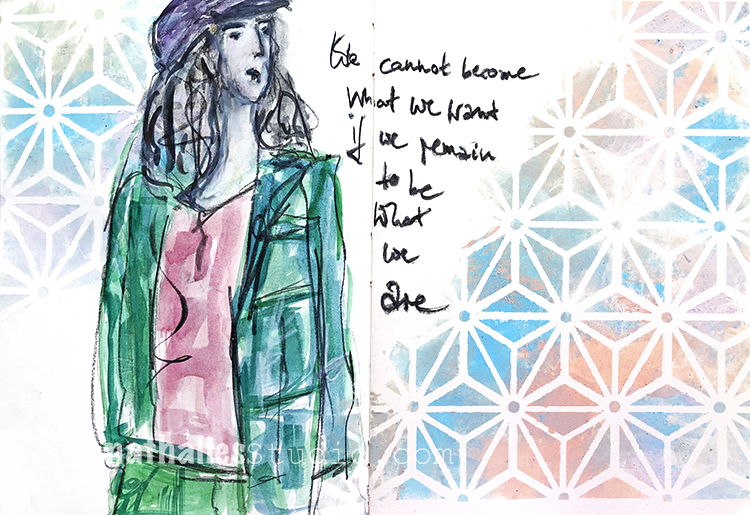 We cannot become
what we want
if we remain
to be
what
we
are
nathaliesstudio.com